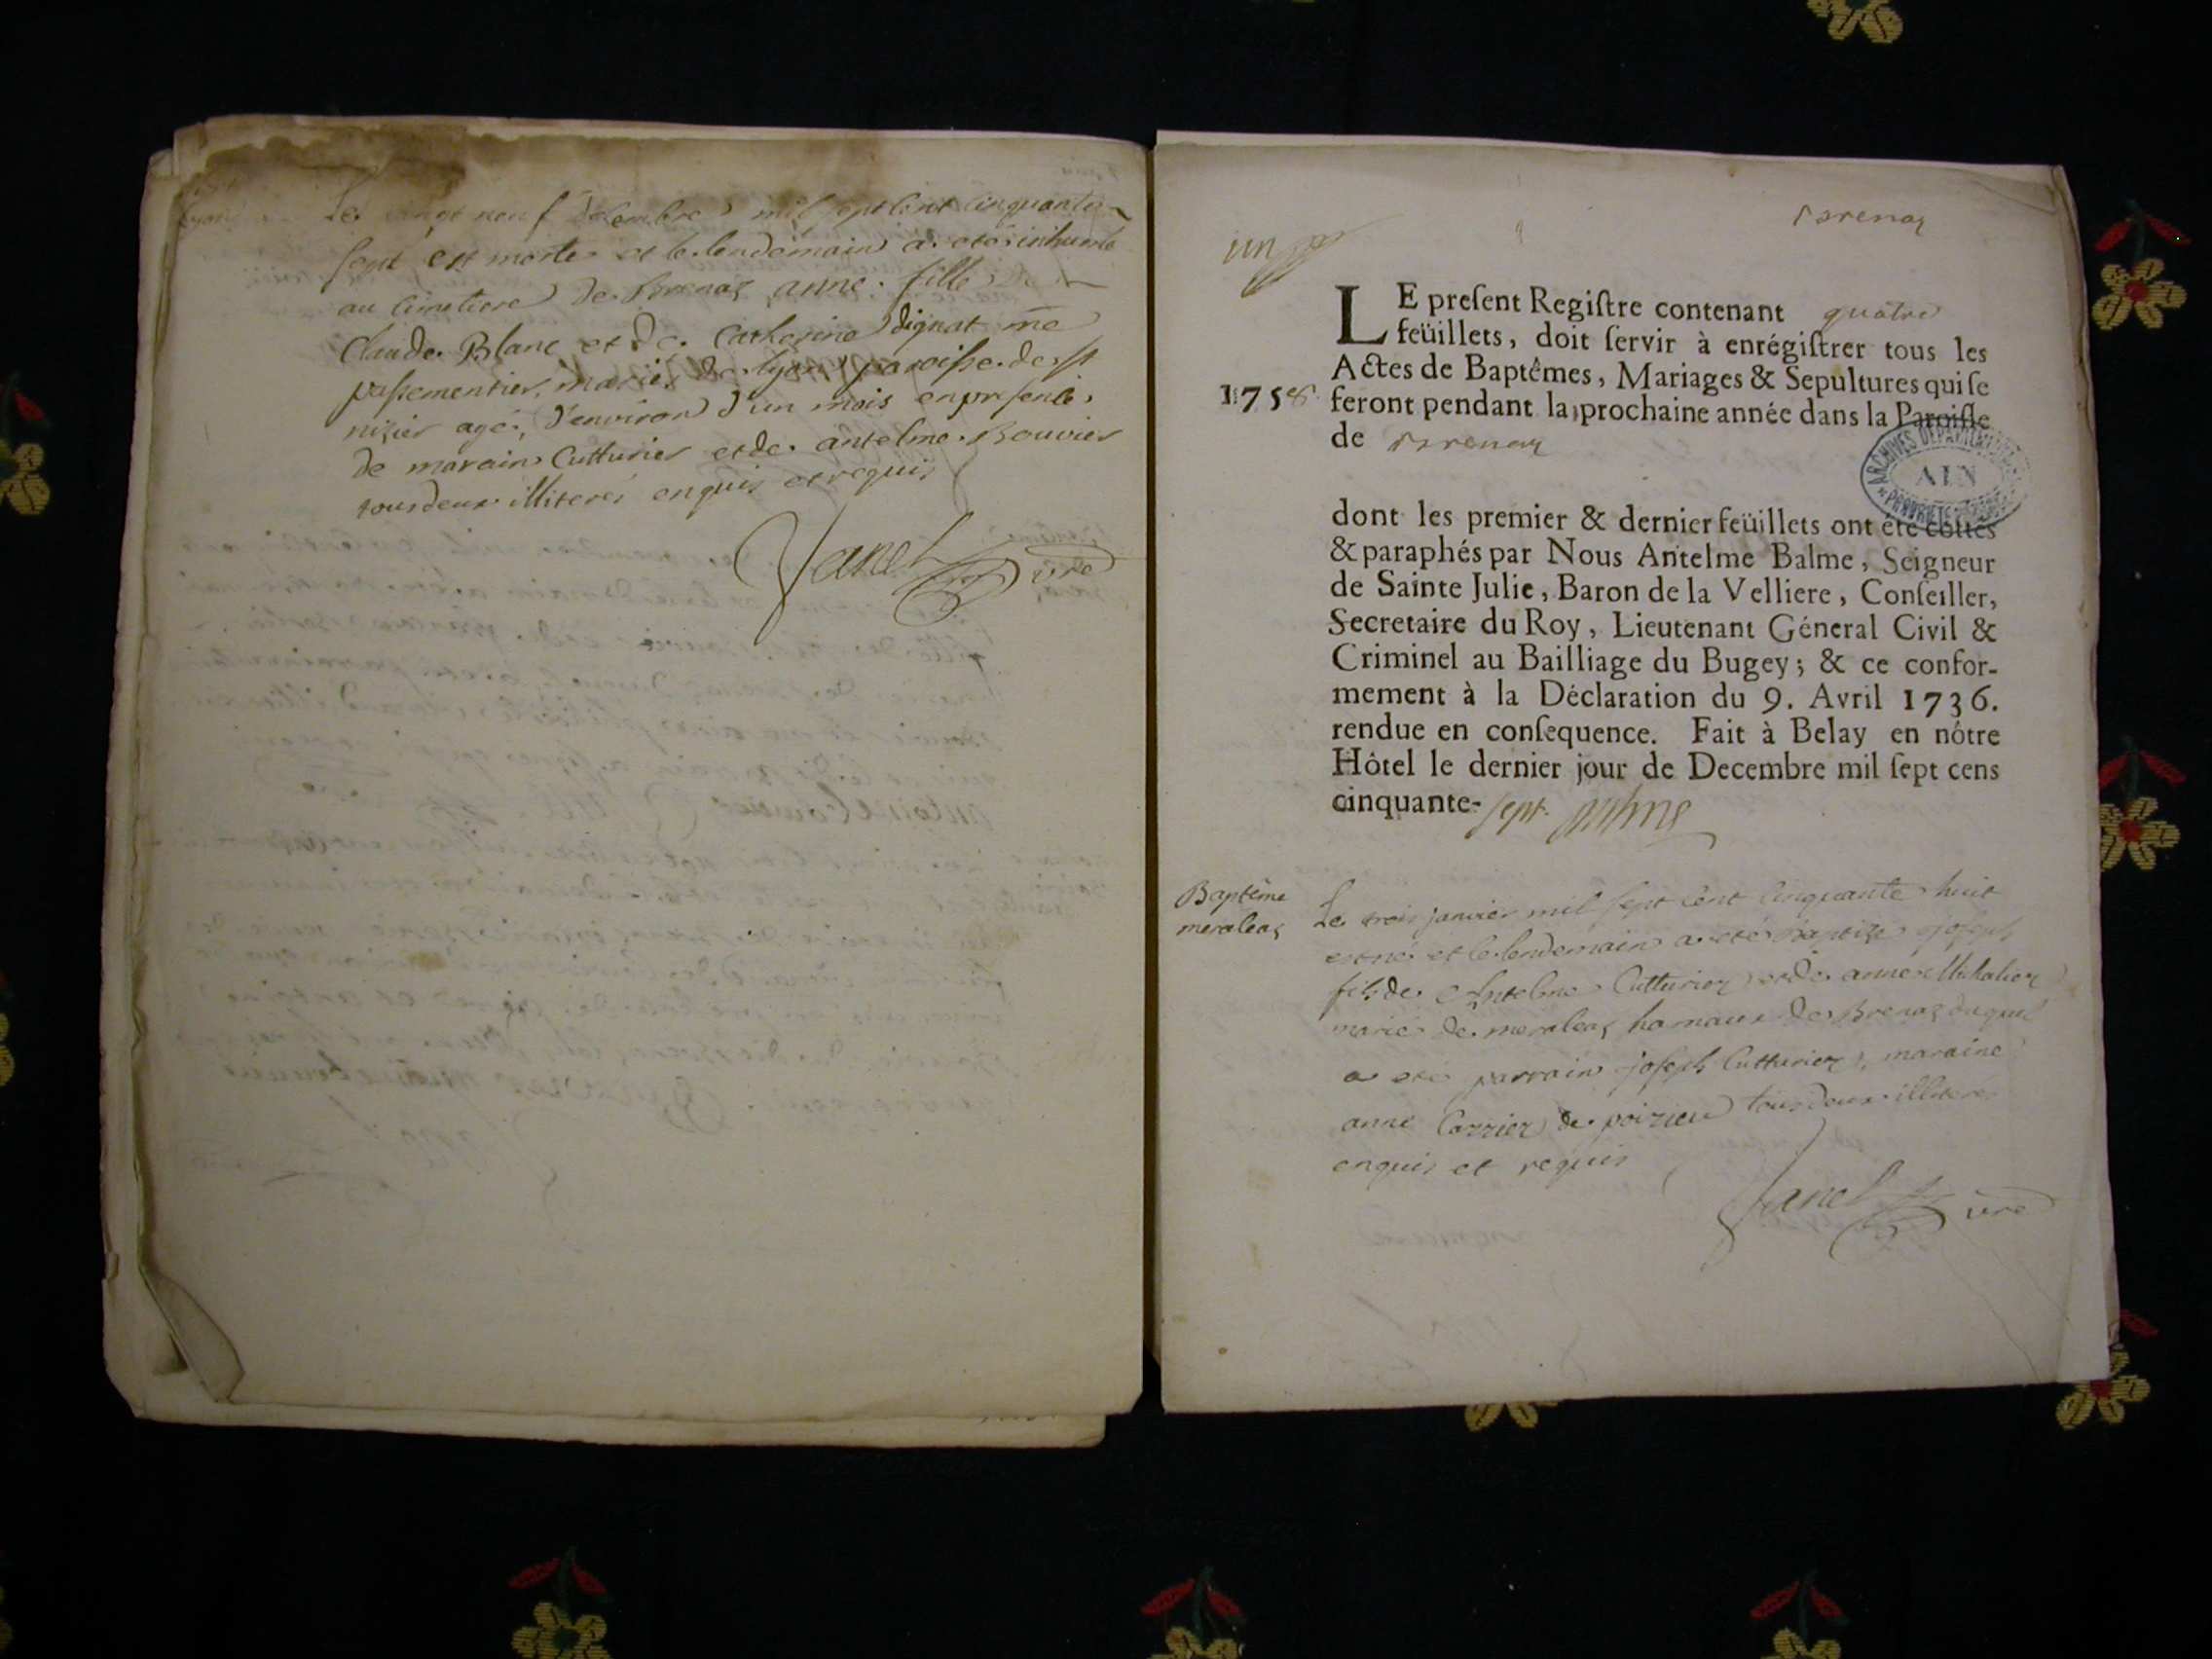 Le vingt neuf decembre mil sept cent cinquante
sept est morte et le lendemain a eté inhumée
au cimetiere de Brenaz anne fille de
Claude Blanc et de Catherine dignat me
passementier, mariés de lyon paroisse de st
nizier agé, d'environ d'un mois en presence
de marain Cutturier et de antelme Bouvier
tous deux illiterés enquis et requis
Janel
Brenaz
un
LE preſent Regiſtre contenant quatre
feüillets, doit ſervir à enrégiſtrer tous les
Actes de Baptêmes, Mariages & Sepultures qui ſe
1758 feront pendant la prochaine année dans la Paroiſſe
de Brenaz
ARCHIVES DEPARTEMENTALES
AIN
PROPRIETE PUBLIQUE
dont les premier & dernier feüillets ont été cottés
& paraphés par Nous Antelme Balme, Seigneur
de Sainte Julie, Baron de la Velliere, Conſeiller,
Secretaire du Roy, Lieutenant Géneral Civil &
Criminel au Bailliage du Bugey; & ce confor-
mement à la Déclaration du 9. Avril 1736.
rendue en conſequence. Fait à Belay en nôtre
Hôtel le dernier jour de Decembre mil ſept cens
cinquante- sept. Balme
Baptême
meraleaz
Le trois janvier mil sept cent cinquante huit
est né et le lendemain a eté baptizé joseph
fils de Antelme Cutturier et de anne Michalier
mariés de meraleaz hamaux de Brenaz duquel
a eté parrain joseph Cutturier, maraine
anne Carrier de poizieu tous deux illiterés
enquis et requis
Janel